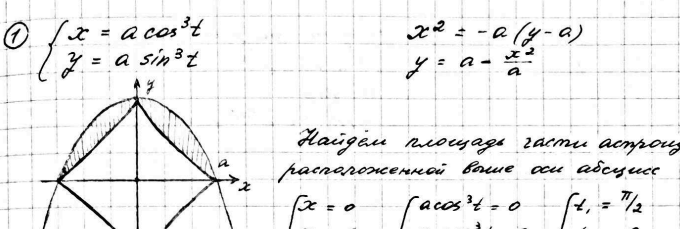 ① { x = a cos³t
y = a sin³t
x² = -a (y - a)
y = a - x²/a
y
a
x
Найдём площадь части астроид
расположенной выше оси абсцисс
{ x = 0 { a cos³t = 0 { t₁ = π/2